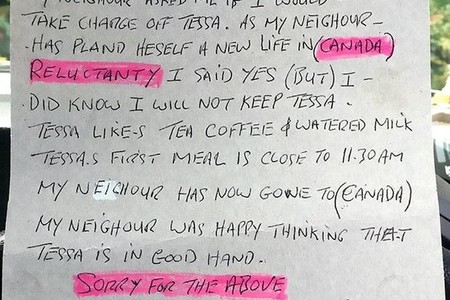 MY NEIGHOUR ASKED ME IF I WOULD
TAKE CHARGE OFF TESSA. AS MY NEIGHOUR_
HAS PLAND HESELF A NEW LIFE IN (CANADA)
RELUCTANTY I SAID YES (BUT) I -
DID KNOW I WILL NOT KEEP TESSA.
TESSA LIKE-S TEA COFFEE & WATERED MILK
TESSA.S FIRST MEAL IS CLOSE TO 11.30AM
MY NEIGHOUR HAS NOW GONE TO (CANADA)
MY NEIGHOUR WAS HAPPY THINKING THE-T
TESSA IS IN GOOD HAND.
SORRY FOR THE ABOVE